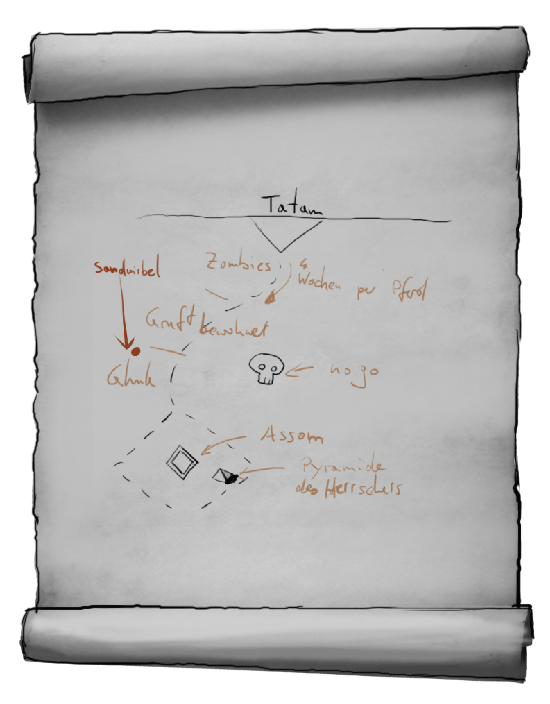 Tatam
Zombies
4
Wochen per Pferd
Sandwirbel
Gruft bewohnet
no go
Assom
Pyramide
des Herrschers